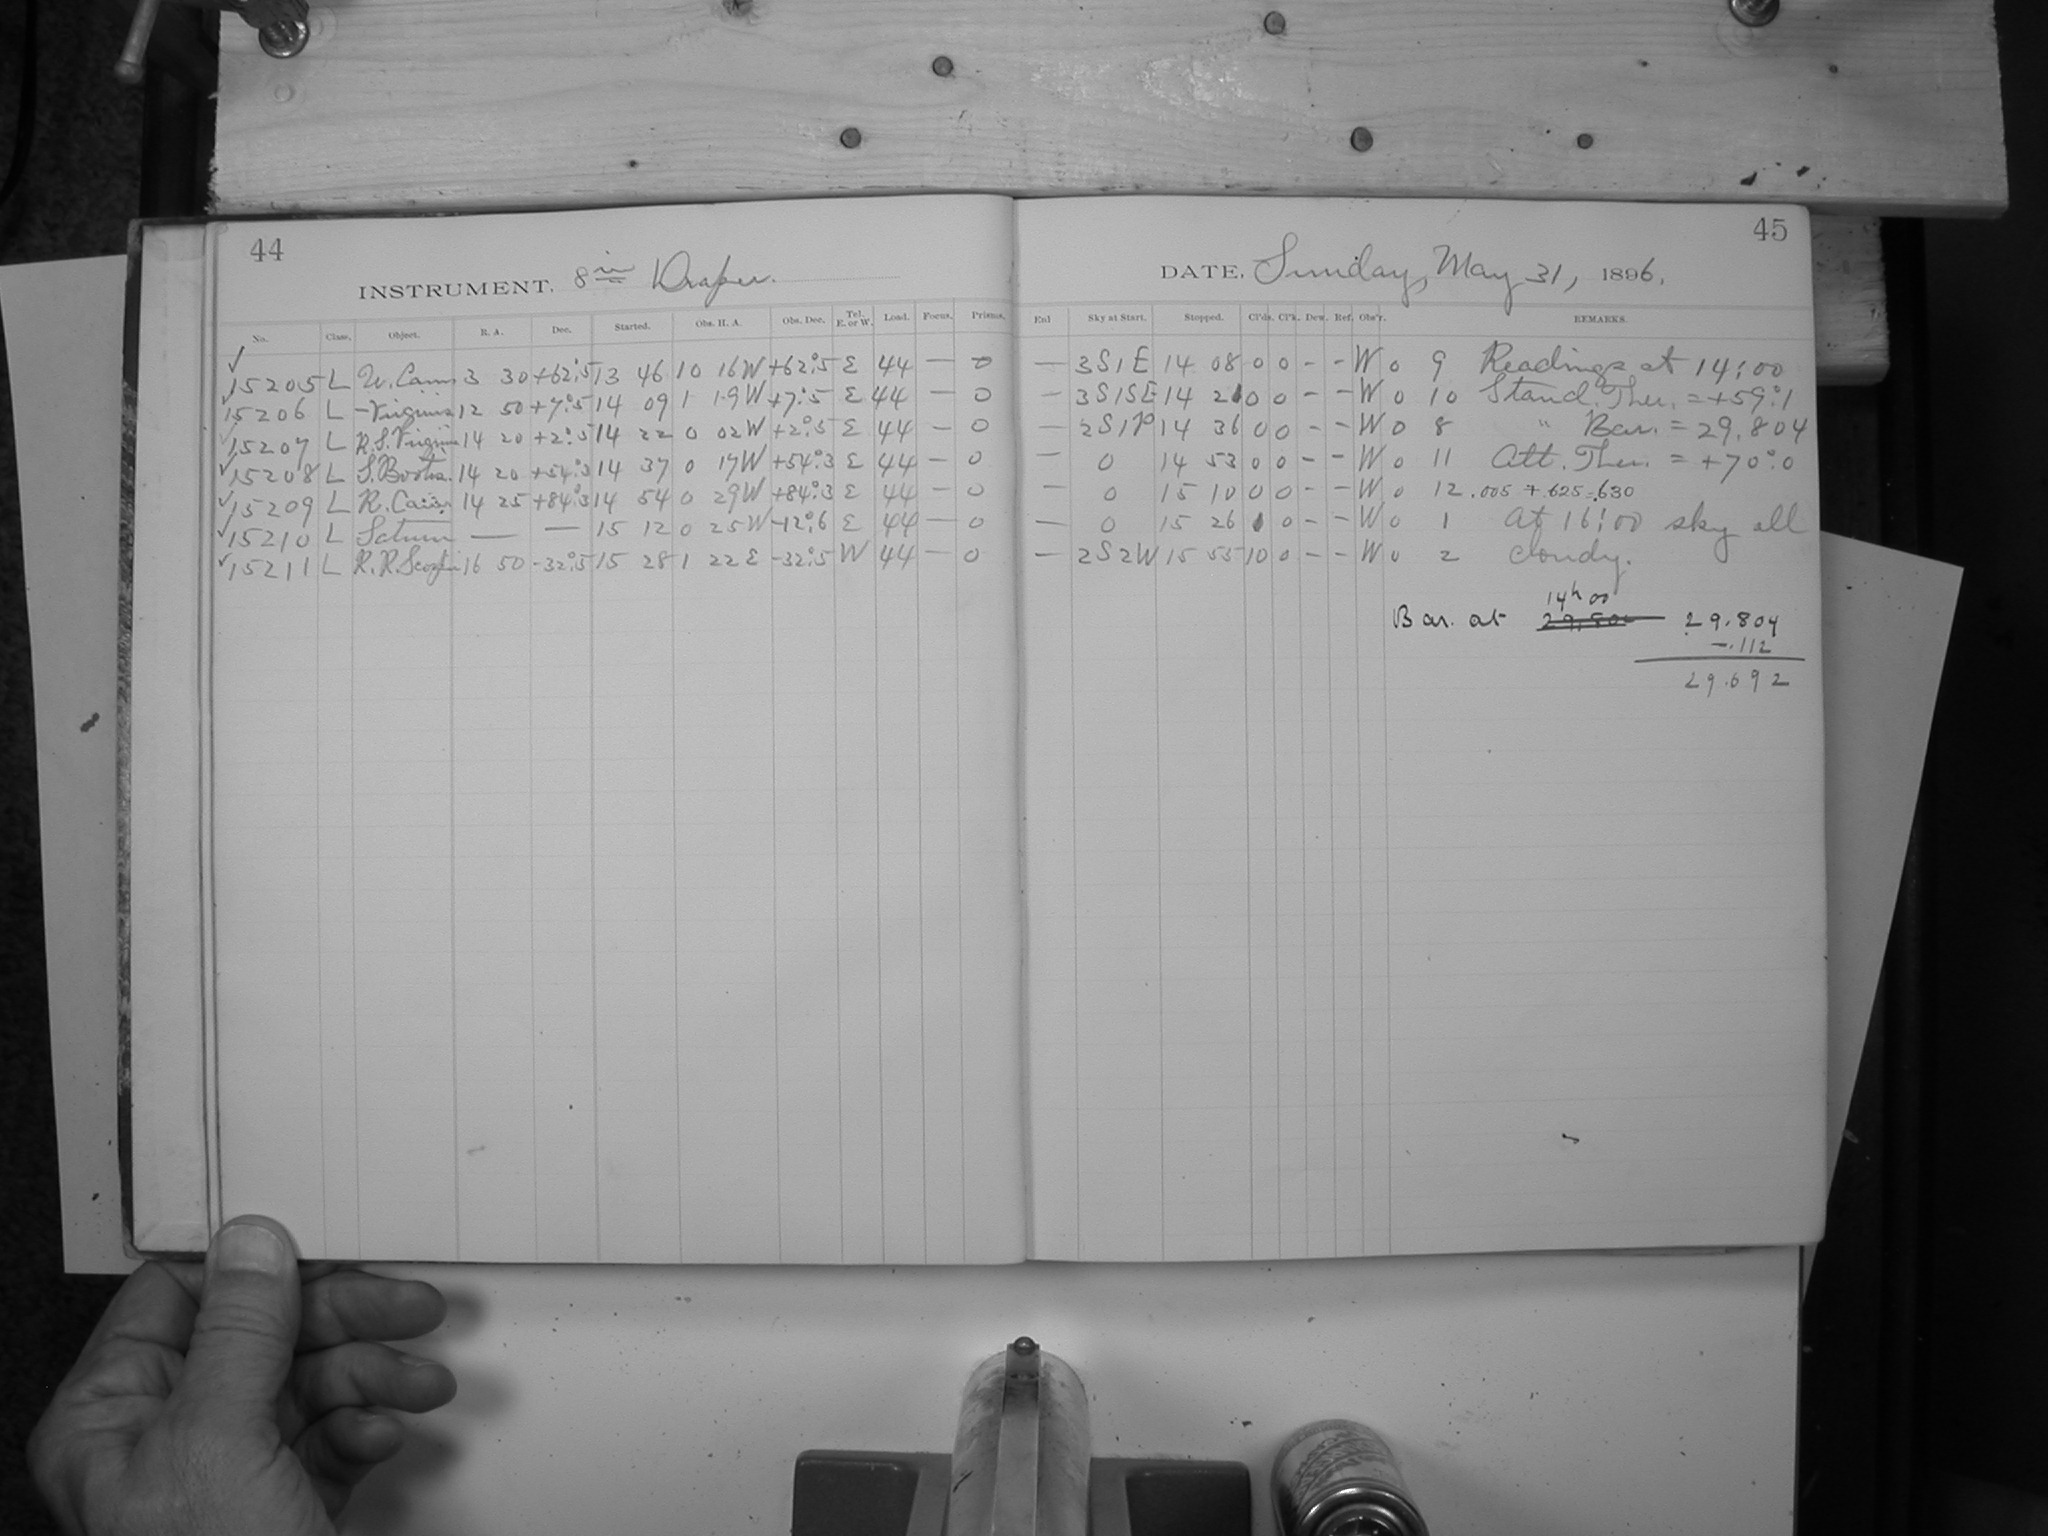 44
INSTRUMENT, 8 in Draper.
No. Class. Object. R. A. Dec. Started. Obs. H. A. Obs. Dec. Tel. E. or W. Load. Focus. Prisms.
✓ 15205 L W. Cam 3 30 +62°.5 13 46 10 16 W +62°.5 E 44 — 0
✓ 15206 L – Virginis 12 50 +7°.5 14 09 1 19 W +7°.5 E 44 — 0
✓ 15207 L R.S. Virginis 14 20 +2°.5 14 22 0 02 W +2°.5 E 44 — 0
✓ 15208 L S. Bootis 14 20 +54°.3 14 37 0 17 W +54°.3 E 44 — 0
✓ 15209 L R. Cam. 14 25 +84°.3 14 54 0 29 W +84°.3 E 44 — 0
✓ 15210 L Saturn — — 15 12 0 25 W -12°.6 E 44 — 0
✓ 15211 L R.R. Scorpii 16 50 -32°.5 15 28 1 22 E -32°.5 W 44 — 0
45
DATE, Sunday, May 31, 1896,
Enl Sky at Start. Stopped. Cl'ds. Cl'k. Dew. Ref. Obs'r. REMARKS.
— 3S1E 14 08 0 0 - - W 0 9 Readings at 14:00
— 3S1SE 14 21 0 0 - - W 0 10 Stand. Ther. = +59°.1
— 2S1P 14 36 0 0 - - W 0 8 " Bar. = 29.804
— 0 14 53 0 0 - - W 0 11 Att. Ther. = +70°.0
— 0 15 10 0 0 - - W 0 12 .005 + .625 = .630
— 0 15 26 1 0 - - W 0 1 At 16:00 sky all
— 2S2W 15 55 10 0 - - W 0 2 cloudy.
14h 00
Bar. at 29.804
-.112
29.692